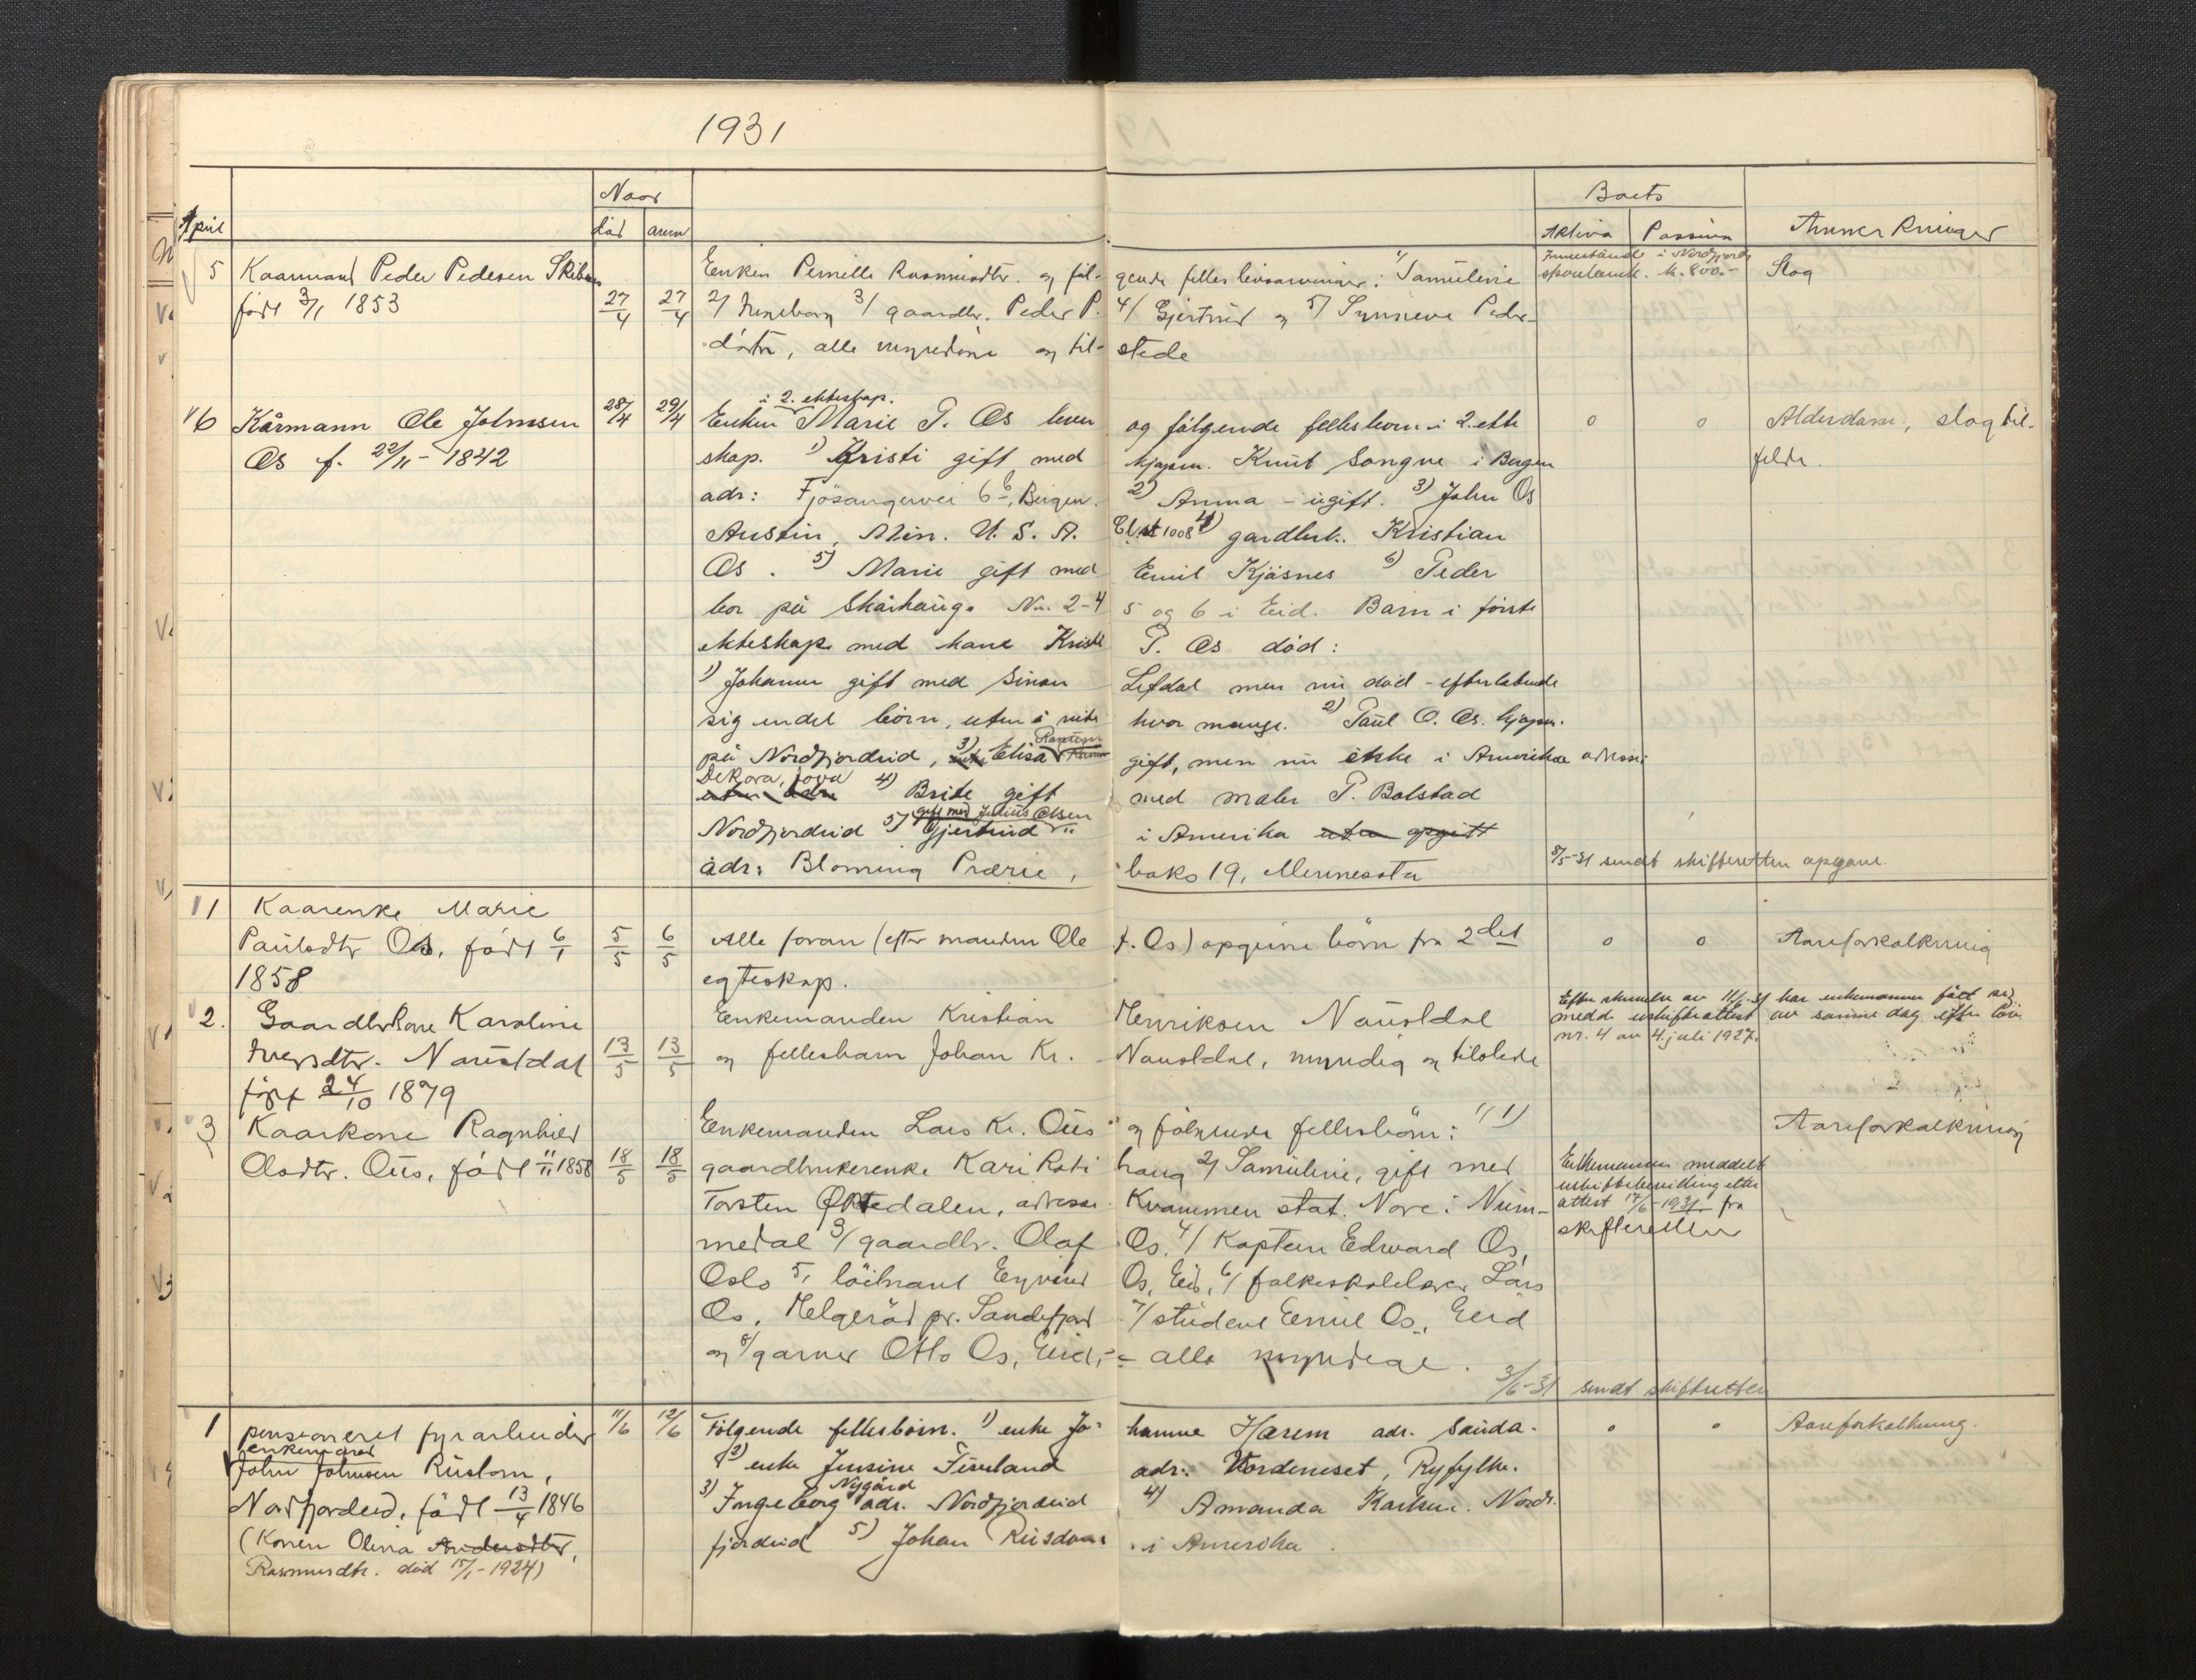 1931
Naar
Boets
April
död
anm
Aktiva
Passiva
Anmerkninger
5 Kaarmand Peder Pedersen
født 3/1 1853
27/4 27/4
Enken Pernille Rasmusdtr. og føl- gende felles livsarvinger: 1/ Samuline
2/ Ingeborg 3/ gaardbr. Peder P. 4/ Gjertrud og 5/ Synneve Peders-
døtre, alle myndige og til- stede
Innestående i Nordfjord
sparebank. k. 800.-
Slag
6 Kårmann Ole Johnsen
Os f. 22/11 - 1842
28/4 29/4
i 2. ekteskap.
Enken Marie P. Os lever og følgende fellesborn i 2. ekte
skap. 1) Kristi gift med kjøpm. Knut Songve i Bergen
adr: Fjøsangervei 6 b, Bergen. 2) Anna - ugift. 3) John Os
Austin, Min. U. S. A. 4) gardbruk. Kristian
Os. 5) Marie gift med Emil Kjøsnes 6) Peder
bor på Skårhaug. Nr. 2-4 5 og 6 i Eid. Barn i første
ekteskap med kone Kristi P. Os død:
1) Johanne gift med Simon Lefdal men nu død - efterlatende
sig endel børn, uten å vite hvor mange. 2) Paul O. Os. kjøpm.
på Nordfjordeid, 3) Elisa gift, men nu enke i Amerika adresse
Dekora, Jova 4) Brite gift med maler P. Bolstad
gift med Julius Olsen
Nordfjordeid 5) Gjertrud i Amerika uten opgitt
adr: Bloming Prærie, boks 19, Minnesota
o o
Alderdom, slagtil-
felde.
8/5-31 sendt skifteretten opgave.
1 Kaarenke Marie
Paulsdtr Os, født 6/1
1858
5/5 6/5
Alle foran (efter manden Ole J. Os) opgivne børn fra 2det
egteskap.
o o
Aareforkalkning
2. Gaardbrkone Karoline
Iversdtr. Naustdal
født 24/10 1879
13/5 13/5
Enkemanden Kristian Henriksen Naustdal
og fellesbarn Johan Kr. Naustdal, myndig og tilstede
har enkemannen fått sig
medd. uskifteattest av samme dag efter lov
nr. 4 av 4. juli 1927.
3 Kaarkone Ragnhild
Olsdtr. Os, født 11/11 1858
18/5 18/5
Enkemanden Lars Kr. Os og følgende fellesbørn: 1)
gaardbrukerenke Kari Roti haug 2/ Samuline, gift med
Torsten Øktedalen, adresse Kvammen stat. Nore i Num-
medal 3/ gaardbr. Olaf Os. 4/ Kaptein Edward Os,
Oslo 5/ løitnant Eyvind Os, Eid, 6/ folkeskolelærer Lars
Os, Helgerød pr. Sandefjord 7/ student Emil Os, Eid
og 8/ garver Otto Os, Eid, - alle myndige.
Aareforkalkning
Enkemannen meddelt
uskiftebevilling etter
attest 17/6 - 1931 fra
skifteretten
3/6-31 sendt skifteretten
1 pensioneret fyrarbeider
enkemand
John Johnsen Rusdom,
Nordfjordeid, født 13/4 1846
(Konen Olina Andersdtr,
Rasmusdtr. død 15/1 - 1924)
11/6 12/6
Følgende fellesborn. 1) enke Jo- hanne Hærem adr. Sauda.
2) enke Jensine adr: Vordeneset, Ryfylke.
Nygård
3) Ingeborg adr. Nordfjordeid 4) Amanda Karlsen. Nord-
fjordeid 5) Johan Rusdom i Amerika.
o o
Aareforkalkning.